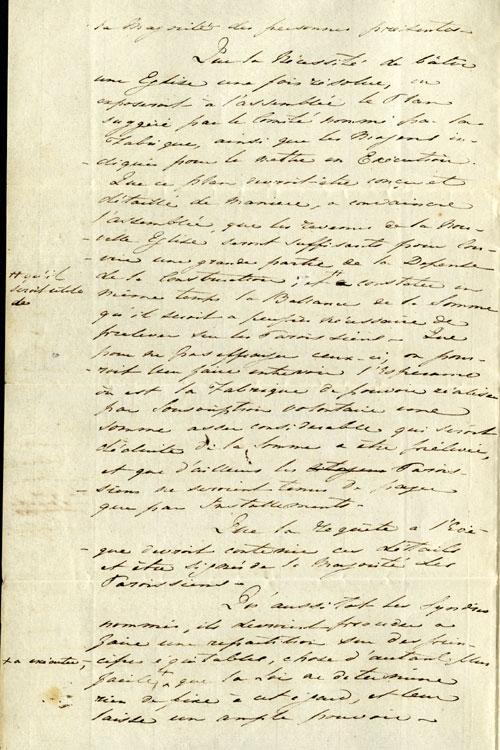 la Majorité des personnes présentes
Que la Nécessité de bâtir
une Eglise une fois résolue, on
exposeroit à l'assemblée le Plan
suggéré par le Comité nommé par la
Fabrique, ainsi que les Moyens in-
diqués pour le mettre en Exécution.
Que ce plan devroit être conçu et
détaillé de maniere, a convaincre
l'assemblée, que les revenus de la Nou-
velle Eglise seront suffisants pour Cou-
vrir une grande partie de la Dépense
de la Construction; et # a constater en
# qu'il
seroit utile
de
même temps la Balance de la Somme
qu'il seroit a peuprès nécessaire de
prelever sur les Paroissiens - Que
pour ne pas effrayer ceux-ci, on pour-
roit leur faire entrevoir l'Espérance
ou est la Fabrique de pouvoir réaliser
par Souscription volontaire une
somme assez considérable qui seroit
déduite de la Somme a être prélevée,
et que d'ailleurs les Parois-
siens ne seroient tenus de payer
que par Installments -
Que la Requête a l'Evê-
que devroit contenir ces détails
et être signée de la Majorité des
Paroissiens -
Qu'aussitôt les Syndics
nommés, ils devront procéder a
faire une repartition sur des prin-
cipes équitables, chose d'autant plus
+ a exécuter
facile + que la Loi ne détermine
rien de fixe a cet egard, et leur
laisse un ample pouvoir -